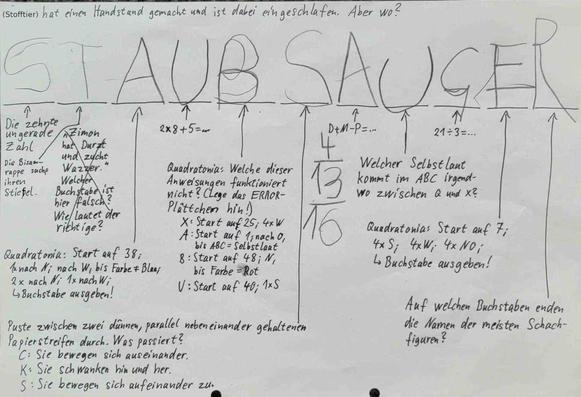 (Stofftier) hat einen Handstand gemacht und ist dabei eingeschlafen. Aber wo?
STAUBSAUGER
Die zehnte
ungerade
Zahl
Die Bisam-
rappe sucht
ihren
Stiefel.
"Zimon
hat Durzt
und zucht
Wazzer."
Welcher
Buchstabe ist
hier falsch?
Wie lautet der
richtige?
Quadratonia: Start auf 38;
1x nach N; nach W, bis Farbe ≠ Blau;
2x nach N; 1x nach W;
↳ Buchstabe ausgeben!
2x8+5=...
Quadratonia: Welche dieser
Anweisungen funktioniert
nicht? (Lege das ERROR-
Plättchen hin!)
X: Start auf 25; 4xW
A: Start auf 1; nach O,
bis ABC = Selbstlaut
B: Start auf 48; N,
bis Farbe = Rot
U: Start auf 40; 1xS
Puste zwischen zwei dünnen, parallel nebeneinander gehaltenen
Papierstreifen durch. Was passiert?
C: Sie bewegen sich auseinander.
K: Sie schwanken hin und her.
S: Sie bewegen sich aufeinander zu.
D+M-P=...
4
13
16
Welcher Selbstlaut
kommt im ABC irgend-
wo zwischen Q und X?
21÷3=...
Quadratonia: Start auf 7;
4xS; 4xW; 4xNO;
↳ Buchstabe ausgeben!
Auf welchen Buchstaben enden
die Namen der meisten Schach-
figuren?